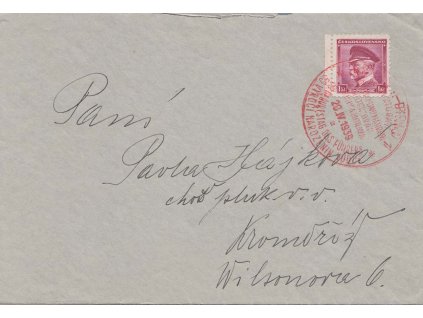 ČESKOSLOVENSKO
20.IV.1939
Paní
Pavla Hájková
choť pluk. v. v.
Kroměříž
Wilsonova 6.